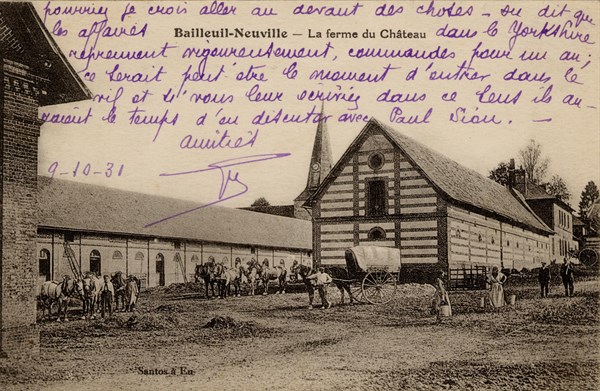 pourriez je crois aller au devant des choses - on dit que
les affaires
Bailleuil-Neuville — La ferme du Château
dans le Yorkshire
reprennent vigoureusement, commandes pour un an;
ce serait peut être le moment d'entrer dans le
vril et si vous leur écriviez dans ce sens ils au-
raient le temps d'en discuter avec Paul Sion. —
amitiés
9-10-31
Santos à Eu